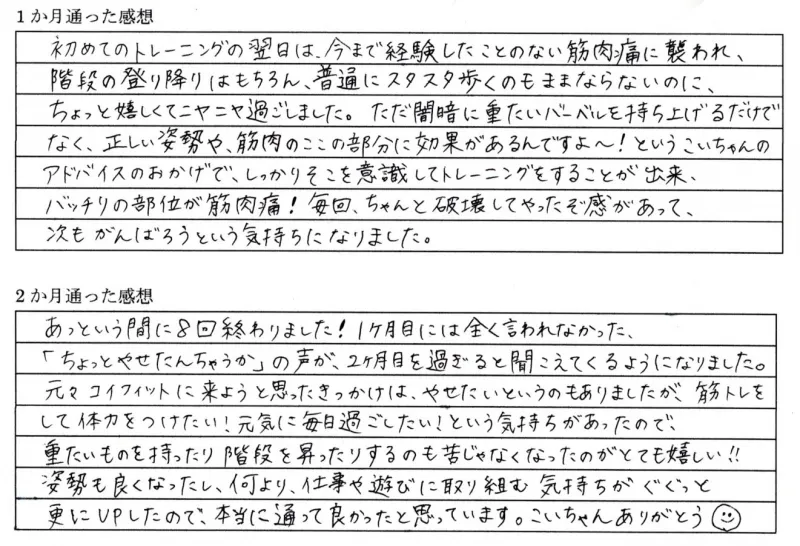 1か月通った感想
初めてのトレーニングの翌日は、今まで経験したことのない筋肉痛に襲われ、
階段の登り降りはもちろん、普通にスタスタ歩くのもままならないのに、
ちょっと嬉しくてニヤニヤ過ごしました。ただ闇暗に重たいバーベルを持ち上げるだけで
なく、正しい姿勢や、筋肉のここの部分に効果があるんですよ〜!というこいちゃんの
アドバイスのおかげで、しっかりそこを意識してトレーニングをすることが出来、
バッチリの部位が筋肉痛!毎回、ちゃんと破壊してやったぞ感があって、
次もがんばろうという気持ちになりました。
2か月通った感想
あっという間に8回終わりました!1ヶ月目には全く言われなかった、
「ちょっとやせたんちゃうか」の声が、2ヶ月目を過ぎると聞こえてくるようになりました。
元々コイフィットに来ようと思ったきっかけは、やせたいというのもありましたが、筋トレを
して体力をつけたい!元気に毎日過ごしたい!という気持ちがあったので、
重たいものを持ったり階段を昇ったりするのも苦じゃなくなったのがとても嬉しい!!
姿勢も良くなったし、何より、仕事や遊びに取り組む気持ちがぐぐっと
更にUPしたので、本当に通って良かったと思っています。こいちゃんありがとう